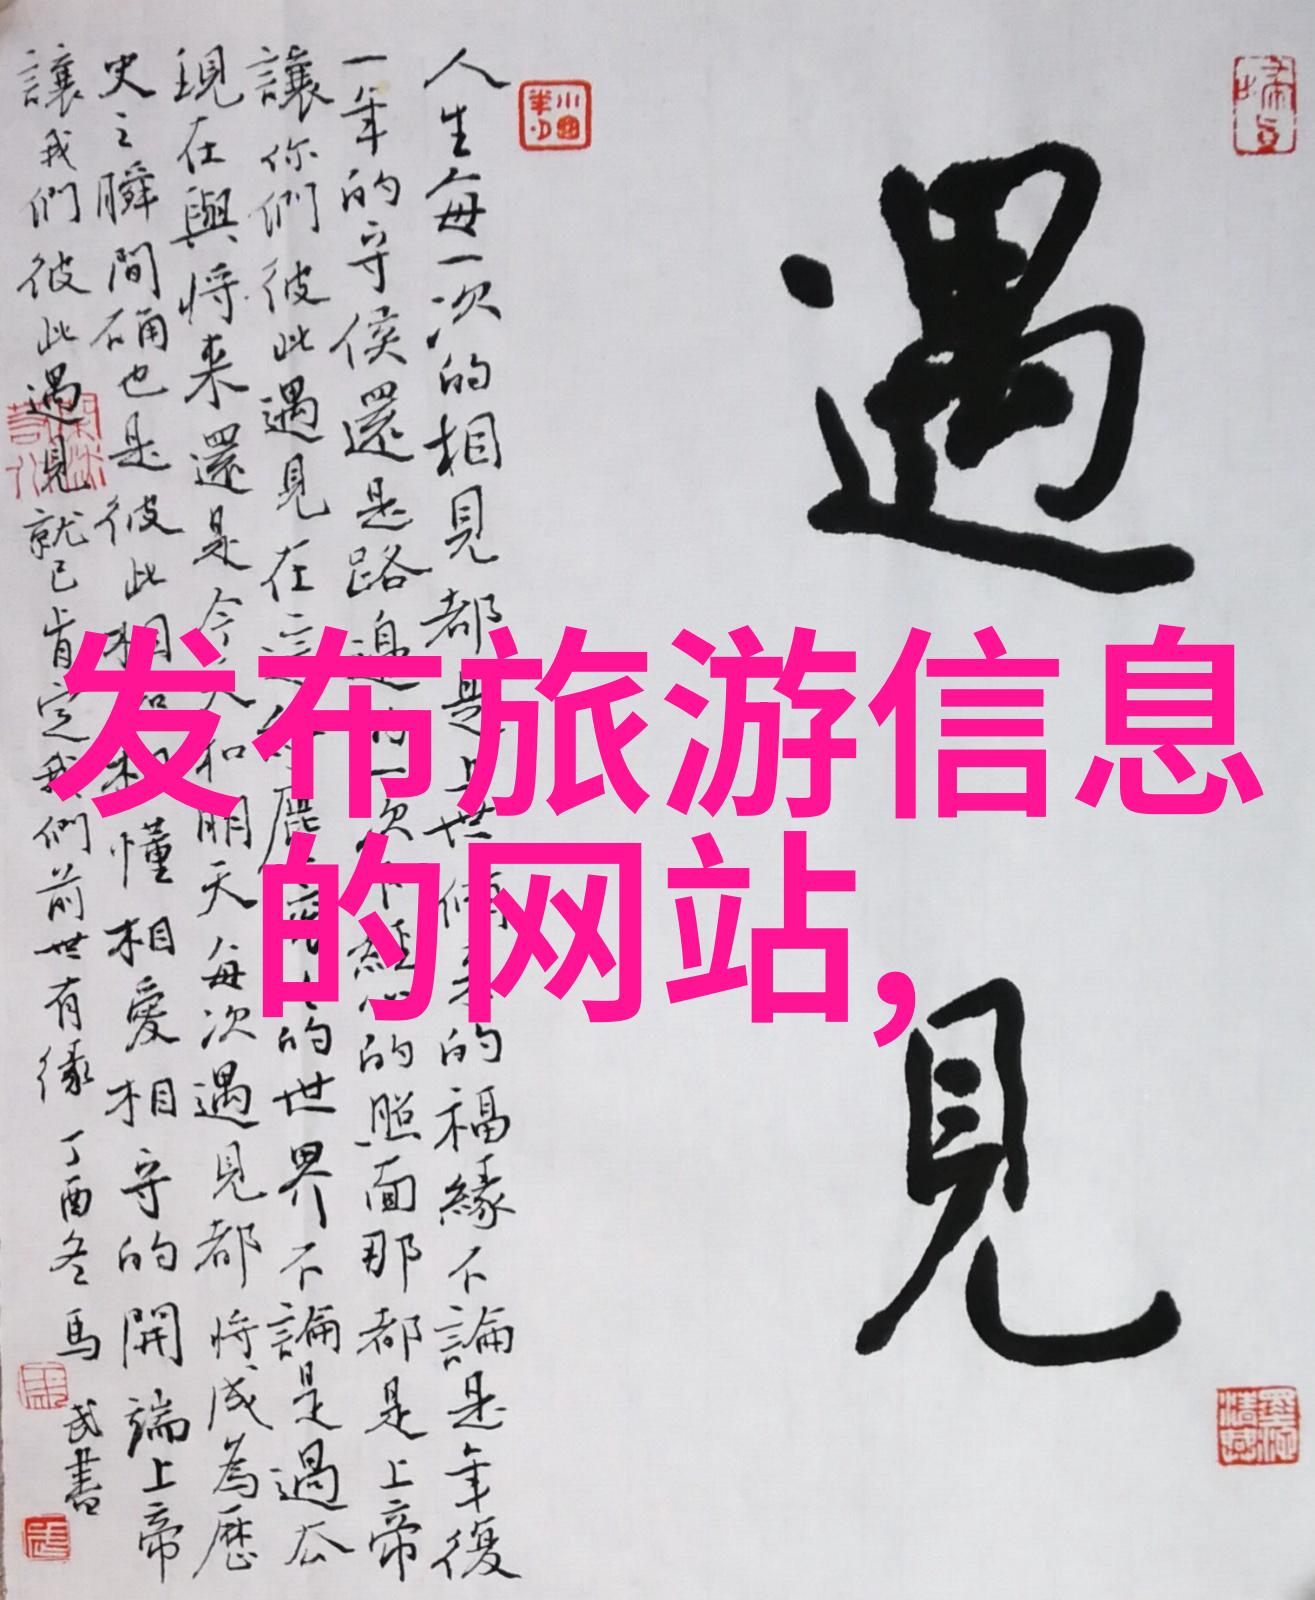 遇見
人生每一次的相見都是上世修来的福緣不論是年復
一年的守侯還是路邊的一次不經心的照面那都是上帝
讓你們彼此遇見在這
的世界不論是過去
現在與將来還是今天和明天每次遇見都將成為歷
史之瞬間确也是彼此相
相懂相愛相守的開端上帝
讓我們彼此遇見就已肯定我們前世有缘
丁酉冬馬武書
发布旅游信息
的网站,